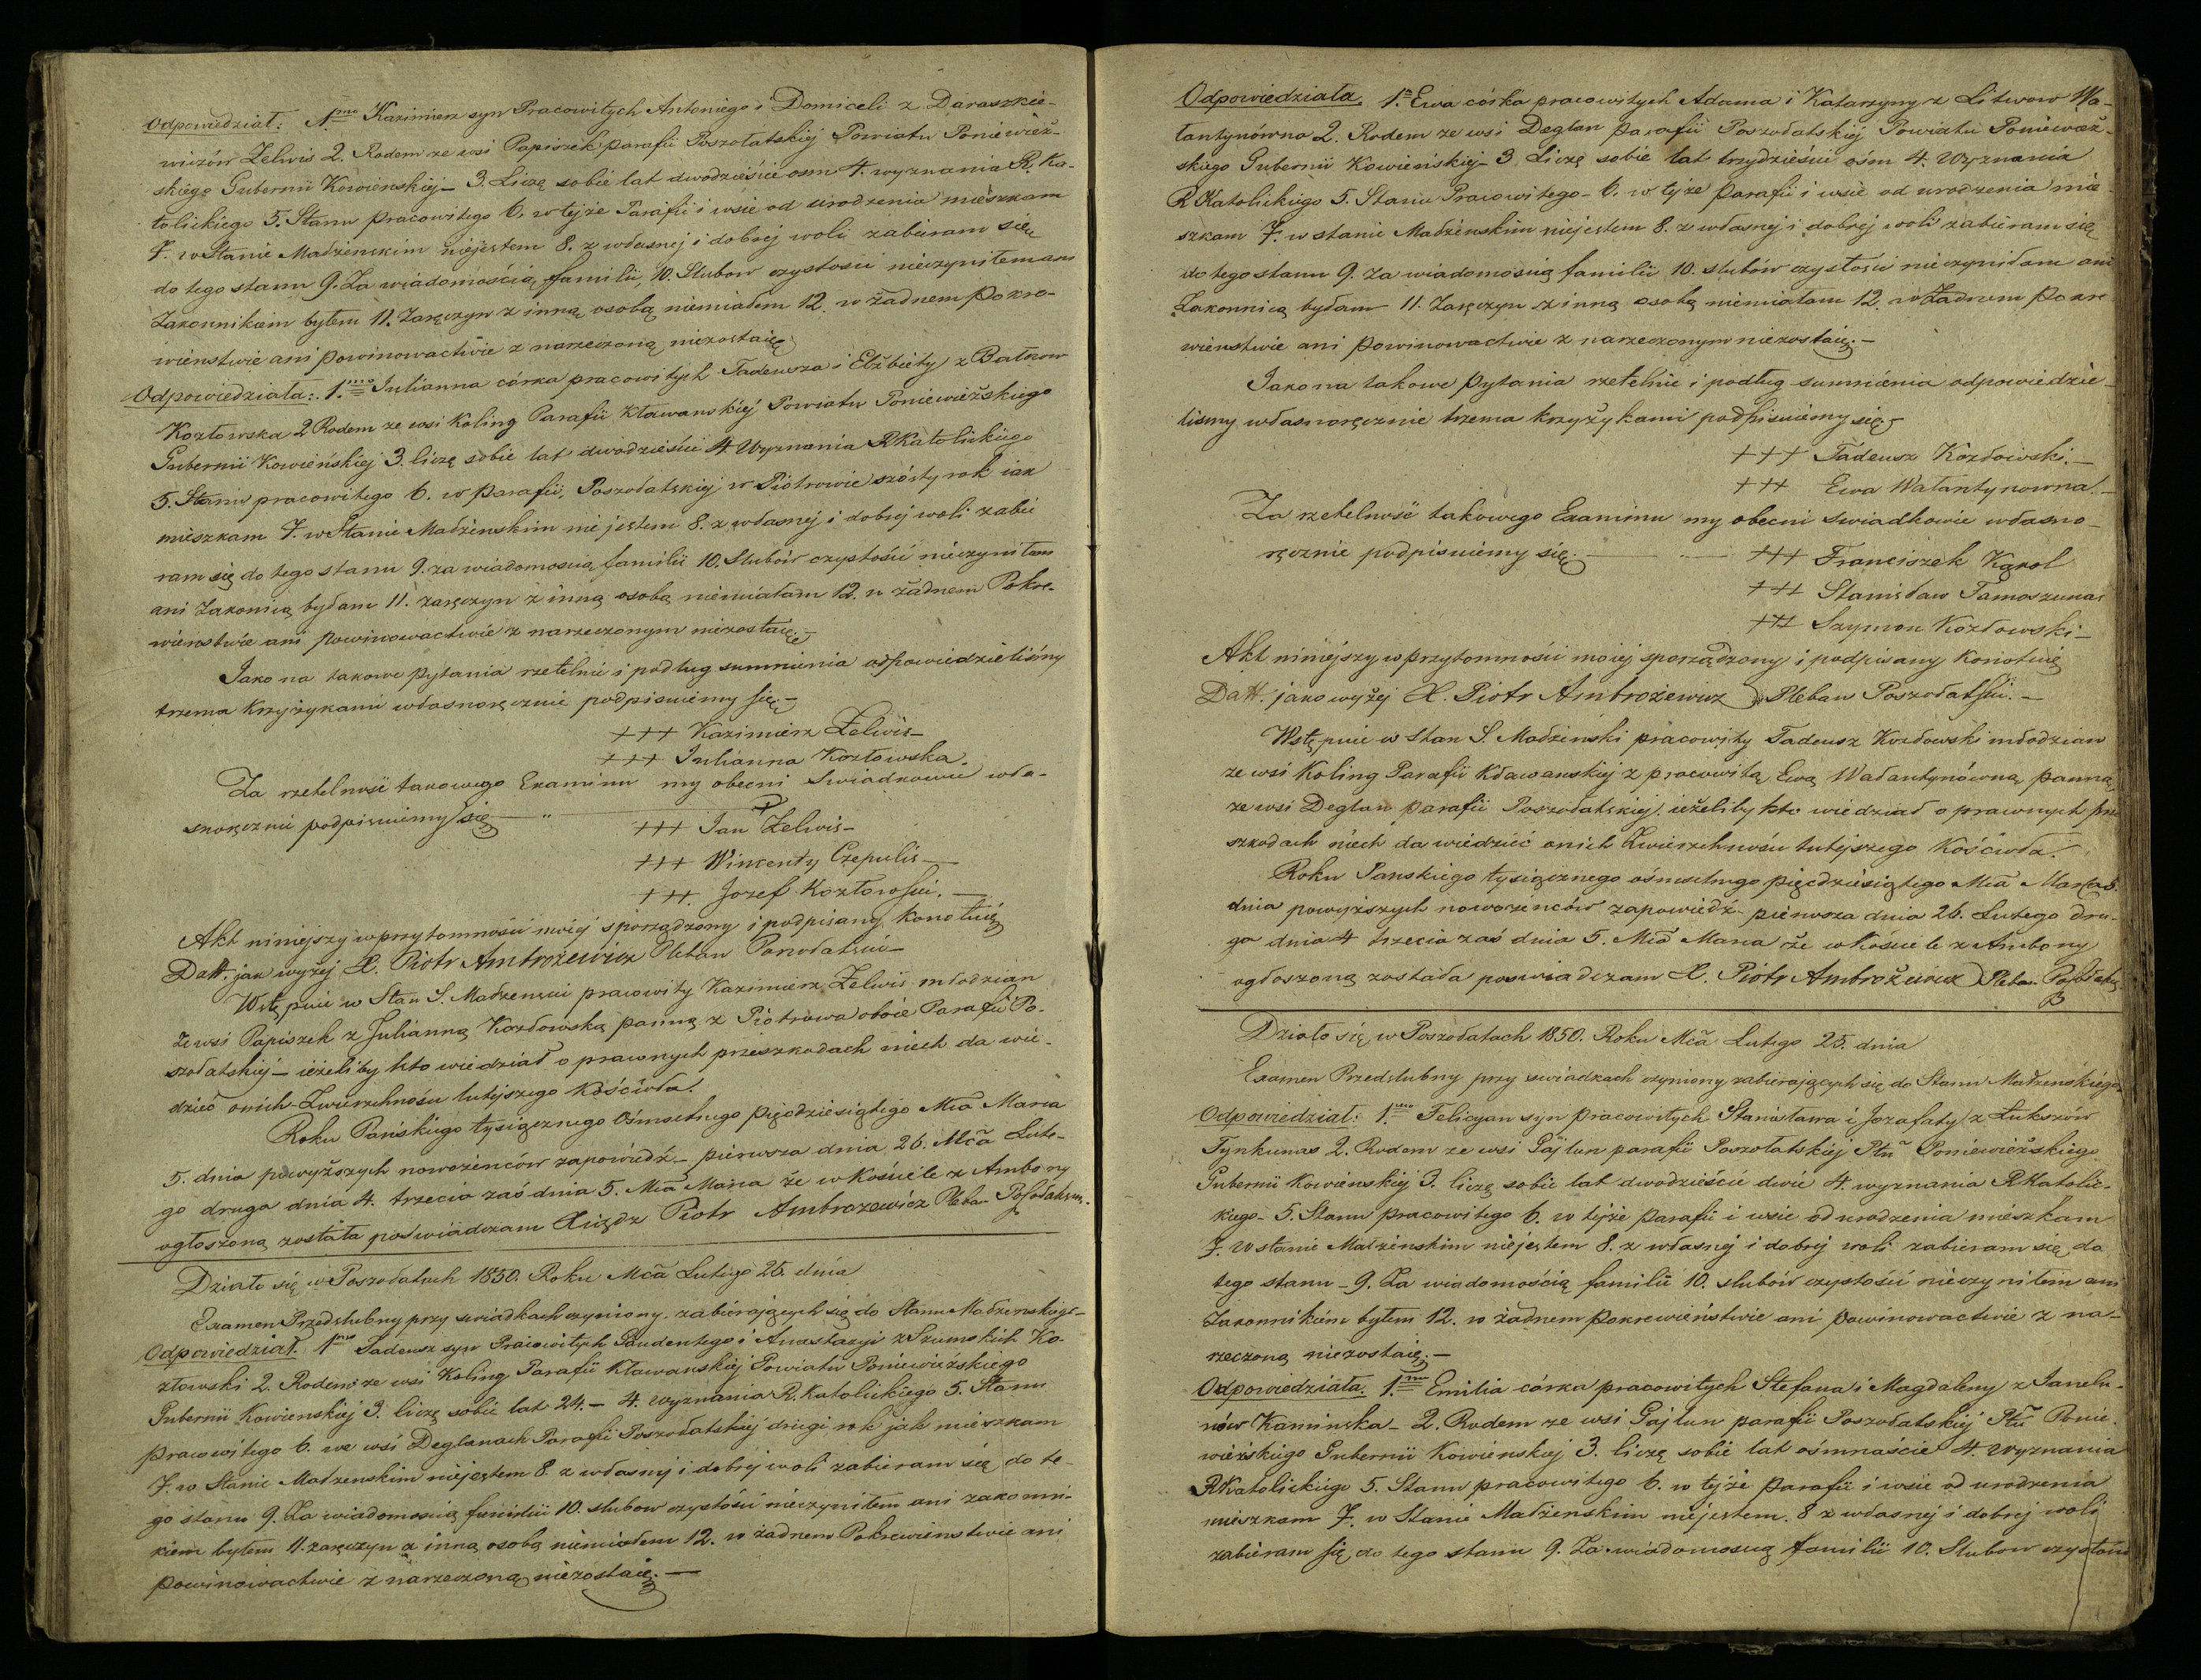 Odpowiedział: 1.mo Kazimierz syn Pracowitych Antoniego i Domiceli z Daraszkie-
wiczów Zelwis 2. Rodem ze wsi Papiszek parafii Poszołatskiej Powiatu Poniewież-
skiego Gubernii Kowienskiej – 3. Liczę sobie lat dwodzieście osm 4. wyznania R. Ka-
tolickiego 5. Stanu pracowitego 6. w tejże Parafii i wsie od urodzenia mieszkam
7. w Stanie Madżenskim niejestem 8. z własnej i dobrej woli zabieram się
do tego stanu 9. Za wiadomością familii, 10. Slubow czystosci nieczyniłem ani
Zakonnikiem byłem 11. Zaręczyn z inną osobą niemiałem 12. w żadnem pokre-
wienstwie ani powinowactwie z narzeczoną niezostaię
Odpowiedziała: 1.mo Julianna córka pracowitych Tadeusza i Elżbiety z Bałzow
Kozłowska 2 Rodem ze wsi Koling Parafii Kławanskiej Powiatu Poniewieżskiego
Gubernii Kowieńskiej 3. liczę sobie lat dwodzieści 4 Wyznania RKatolickiego
5. Stanu pracowitego 6. w parafii, Poszodatskiej w Piotrowie szósty rok iak
mieszkam 7. w Stanie Madżenskim nie jestem 8. z własnej i dobrej woli zabie
ram się do tego stanu 9. za wiadomoscią familii 10. Slubów czystości nieczyniłam
ani Zakonicą byłam 11. zaręczyn z inną osobą niemiałam 12. w żadnem Pokre-
wienstwie ani powinowactwie z narzeczonym niezostaię.–
Jako na takowe pytania rzetelnie i podług sumnienia odpowiedzieliśmy
trzema krzyżykami własnoręcznie podpisuiemy się.–
+++ Kazimierz Zelwis–
+++ Julianna Kozłowska.
Za rzetelność takowego Examinu my obecni Swiadkowie wła-
snoręcznie podpisuiemy się – " –
+++ Jan Zelwis–
+++ Wincenty Czepulis–
+++ Jozef Kozłowski. –
Akt niniejszy w przytomności moiej sporządzony i podpisany konotuię
Datt. jak wyżej X. Piotr Ambrożewicz Pleban
Wstępuie w Stan S. Madżenski pracowity Kazimierz Zelwis młodzian
ze wsi Papiszek z Julianną Kozdowską panną z Piotrowa oboie Parafii Po-
szodatskiej – ieżeliby kto wiedział o prawnych przeszkodach niech da wie-
dzieć onich Zwierzchnosci tutejszego Kościoła.
Roku Pańskiego tysiącznego Ośmsetnego pięcdziesiątego Mca Marca
5. dnia powyższych nowożenców zapowiedź – pierwsza dnia 26. Mca Lute-
go druga dnia 4. trzecia zaś dnia 5. Mca Marca że w Kościele z Ambony
ogłoszoną została poswiadczam Xiądz Piotr Ambrozewicz Pleban
Działo się w Poszodatach 1850. Roku Mca Lutego 25. dnia
Examen Przedslubny przy swiadkach czyniony. zabierających się do Stanu Madżenskiego–
Odpowiedział. 1mo Tadeusz syn Pracowitych Gaudentego i Anastazyi z Szumskich Ko-
złowski 2. Rodem ze wsi Koling Parafii Kławanskiej Powiatu Poniewieżskiego
Gubernii Kowienskiej 3. liczę sobie lat 24. – 4. wyznania R. Katolickiego 5. Stanu
pracowitego 6. we wsi Deglanach Parafii Poszodatskiej drugi rok jak mieszkam
7. w Stanie Madzenskim niejestem 8. z własnej i dobrej woli zabieram się do te-
go stanu 9. Za wiadomoscią familii 10. slubow czystości nieczyniłem ani zakonni-
kiem byłem 11. zaręczyn z inną osobą niemiałem 12. w żadnem Pokrewienstwie ani
powinowactwie z narzeczoną niezostaię. –
Odpowiedziała. 1.o Ewa córka pracowitych Adama i Katarzyny z Litwow Wa-
łantynówna 2. Rodem ze wsi Deglan parafii Poszodatskiej Powiatu Poniewież-
skiego Gubernii Kowieńskiej – 3. Liczę sobie lat trzydzieści ośm 4. Wyznania
R Katolickiego 5. Stanu Pracowitego – 6. w tejże parafii i wsie od urodzenia mie-
szkam 7. w stanie Madżenskim niejestem 8. z własnej i dobrej woli zabieram się
do tego stanu 9. za wiadomoscią familii 10. slubów czystości nieczyniłam ani
Zakonnicą byłam 11. Zaręczyn z inną osobą niemiałam 12. w żadnem pokre
wienstwie ani powinowactwie z narzeczonym niezostaię. –
Jako na takowe pytania rzetelnie i podług sumnienia odpowiedzie-
lismy własnoręcznie trzema krzyżykami podpisuiemy się –
+++ Tadeusz Kozdowski. –
+++ Ewa Wałantynowna. –
Za rzetelność takowego Examinu my obecni swiadkowie własno-
ręcznie podpisuiemy się. –
+++ Franciszek Kąkol
+++ Stanisław Tamoszunas
+++ Szymon Kozłowski –
Akt niniejszy w przytomności moiej sporządzony i podpisany konotuię
Datt. jako wyżej X. Piotr Ambrożewicz Pleban Poszodatski. –
Wstępuie w Stan S. Madżeński pracowity Tadeusz Kozdowski młodzian
ze wsi Koling Parafii Kławanskiej z pracowitą Ewą Wadantynówną, panną,
ze wsi Deglan parafii Poszodatskiej. ieżeliby kto wiedział o prawnych prze
szkodach niech da wiedzieć onich Zwierzchności tutejszego Kościoła.
Roku Panskiego tysiącznego ośmsetnego pięcdziesiątego Mca Marca 5.
dnia powyższych nowożenców zapowiedź – pierwsza dnia 26. Lutego dru-
ga dnia 4 trzecia zaś dnia 5. Mca Marca że w Kościele z Ambony
ogłoszoną została poswiadczam X. Piotr Ambrożewicz Pleban
Działo się w Poszodatach 1850. Roku Mca Lutego 25. dnia
Examen Przedslubny przy swiadkach czyniony zabierających się do Stanu Madżenskiego,
Odpowiedział: 1.mo Felicyan syn pracowitych Stanisława i Jozafaty z Łukszów
Tynkunas 2. Rodem ze wsi Gajlun parafii Poszołatskiej Ptu Poniewieżskiego
Gubernii Kowienskiej 3. liczę sobie lat dwodzieście dwie 4. wyznania RKatolic-
kiego – 5. Stanu pracowitego 6. w tejże parafii i wsie od urodzenia mieszkam
7. w stanie Małżenskim niejestem 8. z własnej i dobrej woli zabieram się do
tego stanu – 9. Za wiadomością familii 10. slubów czystości nieczyniłem ani
Zakonnikiem byłem 12. w żadnem pokrewieństwie ani powinowactwie z na-
rzeczoną niezostaię. –
Odpowiedziała. 1.mo Emilia córka pracowitych Stefana i Magdaleny z Janelu-
nów Kaminska – 2. Rodem ze wsi Gajlun parafii Poszodatskiej Ptu Ponie-
wieżskiego Gubernii Kowienskiej 3. liczę sobie lat ośmnaście 4 Wyznania
RKatolickiego 5. Stanu pracowitego 6. w tejże parafii i wsie od urodzenia
mieszkam 7. w Stanie Madżenskim niejestem. 8 z własnej i dobrej woli
zabieram się do tego stanu 9. Za wiadomoscią familii 10. Slubow czystości